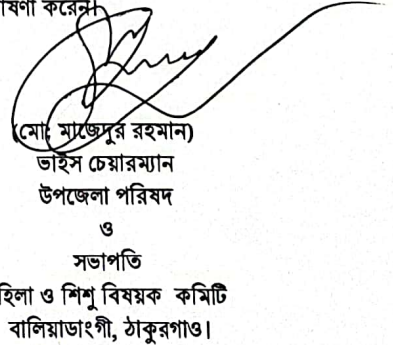 ষণা করেন।
(মো: মাজেদুর রহমান)
ভাইস চেয়ারম্যান
উপজেলা পরিষদ
ও
সভাপতি
হিলা ও শিশু বিষয়ক কমিটি
বালিয়াডাংগী, ঠাকুরগাও।